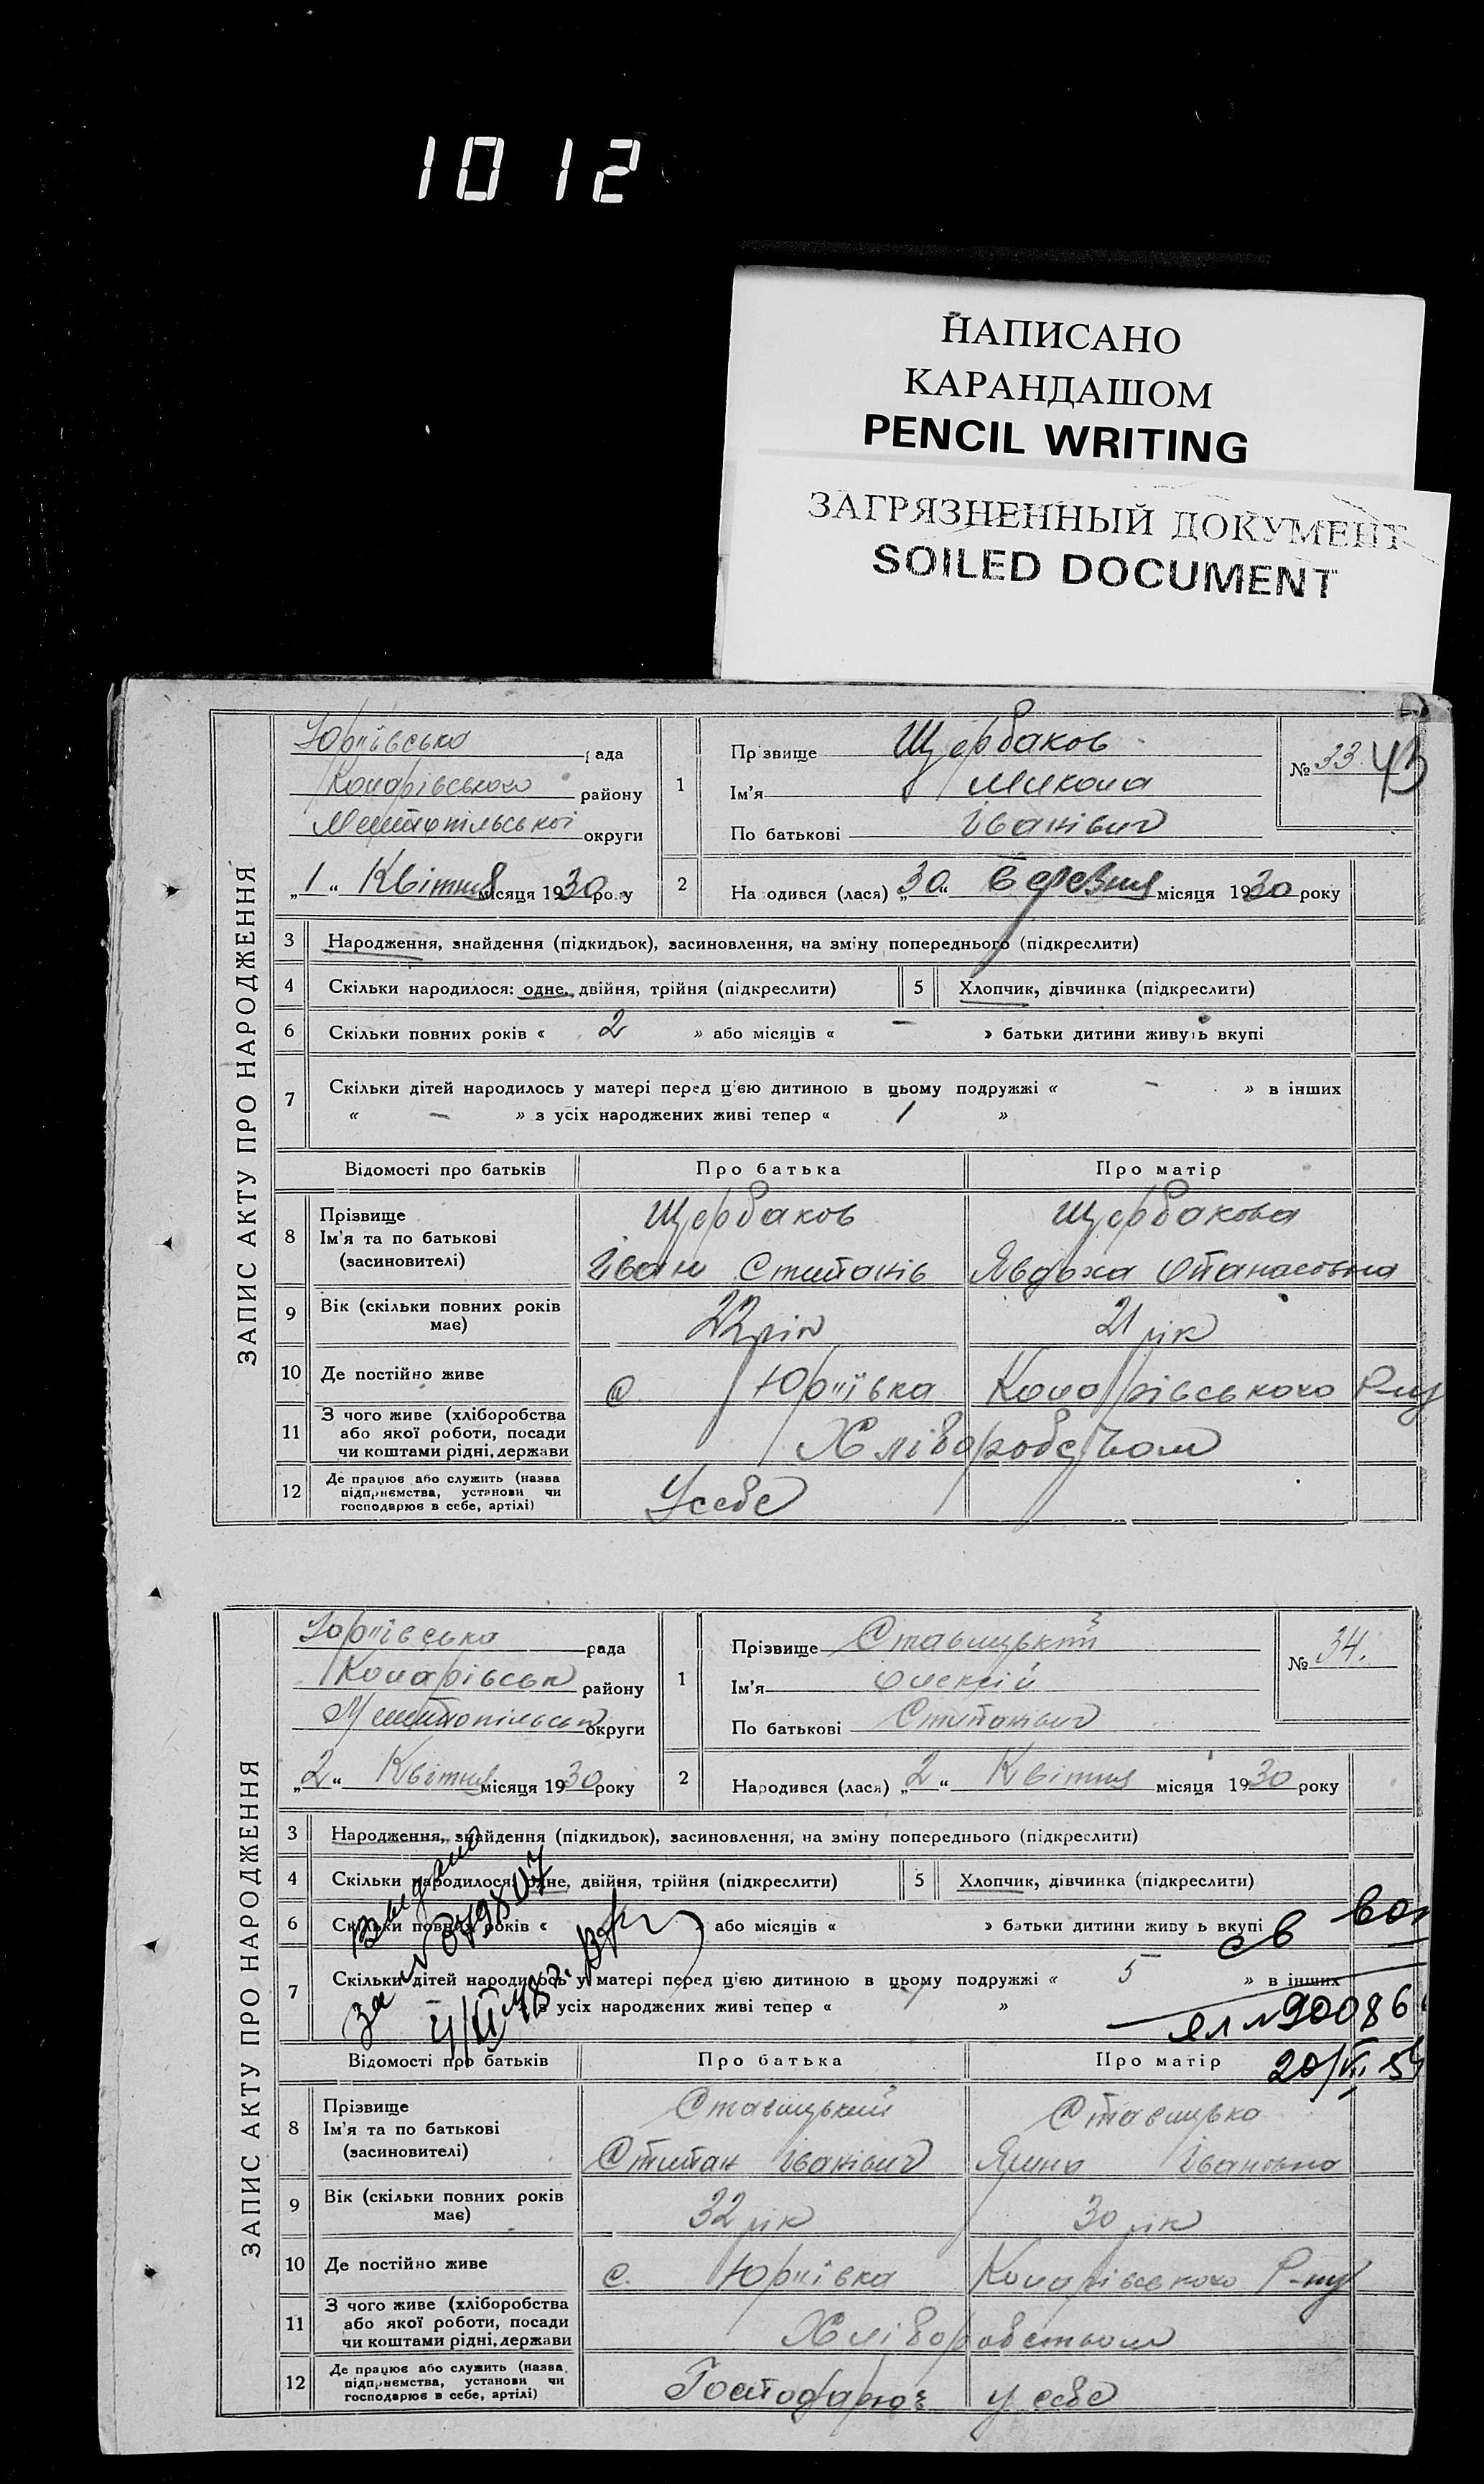 1012
НАПИСАНО
КАРАНДАШОМ
PENCIL WRITING
ЗАГРЯЗНЕННЫЙ ДОКУМЕНТ
SOILED DOCUMENT
ЗАПИС АКТУ ПРО НАРОДЖЕННЯ
Юр'ївська рада
району
округи
„1“ Квітня місяця 1930 року
1
Прізвище Щербаков
Ім'я Микола
По батькові Іванівич
№ 33 43
2 Народився (лася) „30“ березня місяця 1930 року
3 Народження, знайдення (підкидьок), засиновлення, на зміну попереднього (підкреслити)
4 Скільки народилося: одне, двійня, трійня (підкреслити) 5 Хлопчик, дівчинка (підкреслити)
6 Скільки повних років « 2 » або місяців « – » батьки дитини живуть вкупі
7 Скільки дітей народилось у матері перед цією дитиною в цьому подружжі « – » в інших
« – » з усіх народжених живі тепер « 1 »
Відомості про батьків Про батька Про матір
8 Прізвище
Ім'я та по батькові
(засиновителі)
Щербаков Щербакова
Іван Степанів Явдоха Опанасовна
9 Вік (скільки повних років має) 22 рік 21 рік
10 Де постійно живе с. Юр'ївка Р-ну
11 З чого живе (хліборобства
або якої роботи, посади
чи коштами рідні, держави
Хліборобством
12 Де працює або служить (назва
підприємства, установи чи
господарює в себе, артілі)
У себе
ЗАПИС АКТУ ПРО НАРОДЖЕННЯ
Юр'ївська рада
району
округи
„2“ Квітня місяця 1930 року
1
Прізвище Ставицький
Ім'я Олексій
По батькові Степанівич
№ 34.
2 Народився (лася) „2“ Квітня місяця 1930 року
3 Народження, знайдення (підкидьок), засиновлення, на зміну попереднього (підкреслити)
4 Скільки народилося: одне, двійня, трійня (підкреслити) 5 Хлопчик, дівчинка (підкреслити)
6 Скільки повних років « » або місяців « » батьки дитини живуть вкупі
7 Скільки дітей народилось у матері перед цією дитиною в цьому подружжі « 5 » в інших
з усіх народжених живі тепер « »
за №
св
20/VI 54
Відомості про батьків Про батька Про матір
8 Прізвище
Ім'я та по батькові
(засиновителі)
Ставицький Ставицька
Степан Іванівич Ивановна
9 Вік (скільки повних років має) 32 рік 30 рік
10 Де постійно живе с. Юр'ївка Р-ну
11 З чого живе (хліборобства
або якої роботи, посади
чи коштами рідні, держави
Хліборобством
12 Де працює або служить (назва
підприємства, установи чи
господарює в себе, артілі)
Господарює у себе